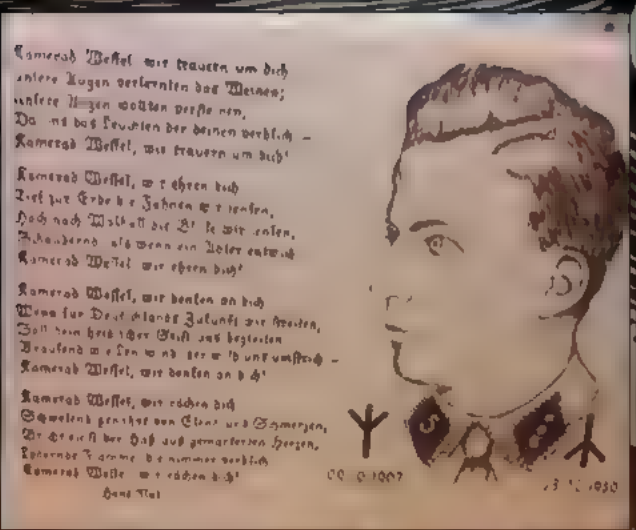 Kamerad Wessel, wir trauern um dich
unsere Augen verlernten das Weinen;
unsere Augen wollten
das Leuchten der deinen verblich –
Kamerad Wessel, wir trauern um dich!
Kamerad Wessel, wir ehren dich
Tief zur Erde die Fahnen wir senken,
Hoch nach Walhall die wir
als wenn ein Adler entwich
Kamerad Wessel wir ehren dich!
Kamerad Wessel, wir denken an dich
Wenn für Deutschlands Zukunft wir streiten,
Soll dein heldischer Geist uns begleiten
Brausend wie ein der wild uns umstrich –
Kamerad Wessel, wir denken an dich!
Kamerad Wessel, wir rächen dich
Schwelend genährt von Elend und Schmerzen,
der Haß aus gemarterten Herzen,
Lodernde Flamme die nimmer verblich
Kamerad Wessel wir rächen dich!
Hans
5